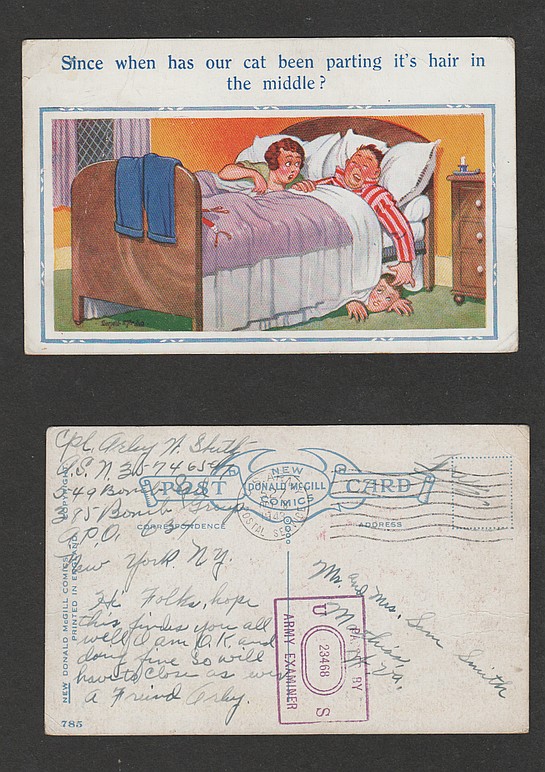 Since when has our cat been parting it's hair in
the middle?
Cpl. Arley W.
A.S.N.
549 Bomb
385 Bomb Group
A.P.O.
New York N.Y.
NEW
DONALD McGILL
COMICS
POST CARD
CORRESPONDENCE
ADDRESS
NEW DONALD McGILL COMICS
COPYRIGHT
PRINTED IN ENGLAND
Hi Folks, hope
this finds you all
well I am O.K. and
doing fine so will
have to close as ever
A Friend Arley.
Free
Mr. and Mrs. Sam Smith
Mathias,
W. Va.
PASSED BY
U S
23468
ARMY EXAMINER
785